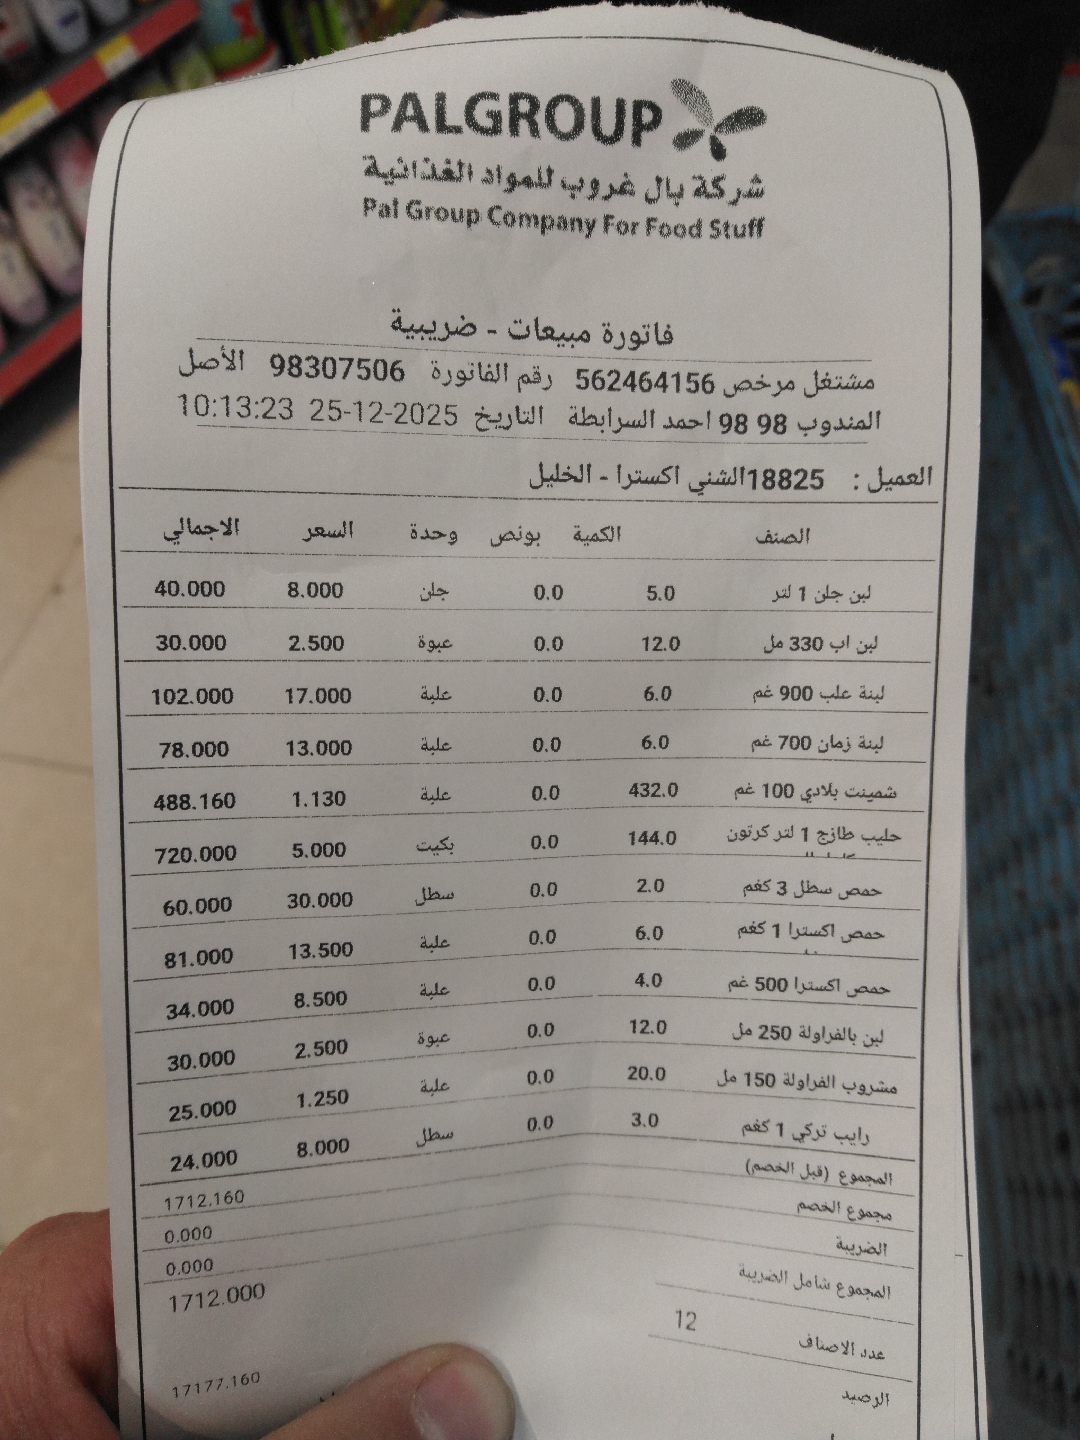 PALGROUP
شركة بال غروب للمواد الغذائية
Pal Group Company For Food Stuff
فاتورة مبيعات - ضريبية
مشتغل مرخص 562464156 رقم الفاتورة 98307506 الأصل
المندوب 98 98 احمد السرابطة التاريخ 25-12-2025 10:13:23
العميل : 18825الشني اكسترا - الخليل
الصنف الكمية بونص وحدة السعر الاجمالي
لبن جلن 1 لتر 5.0 0.0 جلن 8.000 40.000
لبن اب 330 مل 12.0 0.0 عبوة 2.500 30.000
لبنة علب 900 غم 6.0 0.0 علبة 17.000 102.000
لبنة زمان 700 غم 6.0 0.0 علبة 13.000 78.000
شمينت بلادي 100 غم 432.0 0.0 علبة 1.130 488.160
حليب طازج 1 لتر كرتون 144.0 0.0 بكيت 5.000 720.000
حمص سطل 3 كغم 2.0 0.0 سطل 30.000 60.000
حمص اكسترا 1 كغم 6.0 0.0 علبة 13.500 81.000
حمص اكسترا 500 غم 4.0 0.0 علبة 8.500 34.000
لبن بالفراولة 250 مل 12.0 0.0 عبوة 2.500 30.000
مشروب الفراولة 150 مل 20.0 0.0 علبة 1.250 25.000
رايب تركي 1 كغم 3.0 0.0 سطل 8.000 24.000
المجموع (قبل الخصم) 1712.160
مجموع الخصم 0.000
الضريبة 0.000
المجموع شامل الضريبة 1712.000
عدد الاصناف 12
الرصيد 17177.160